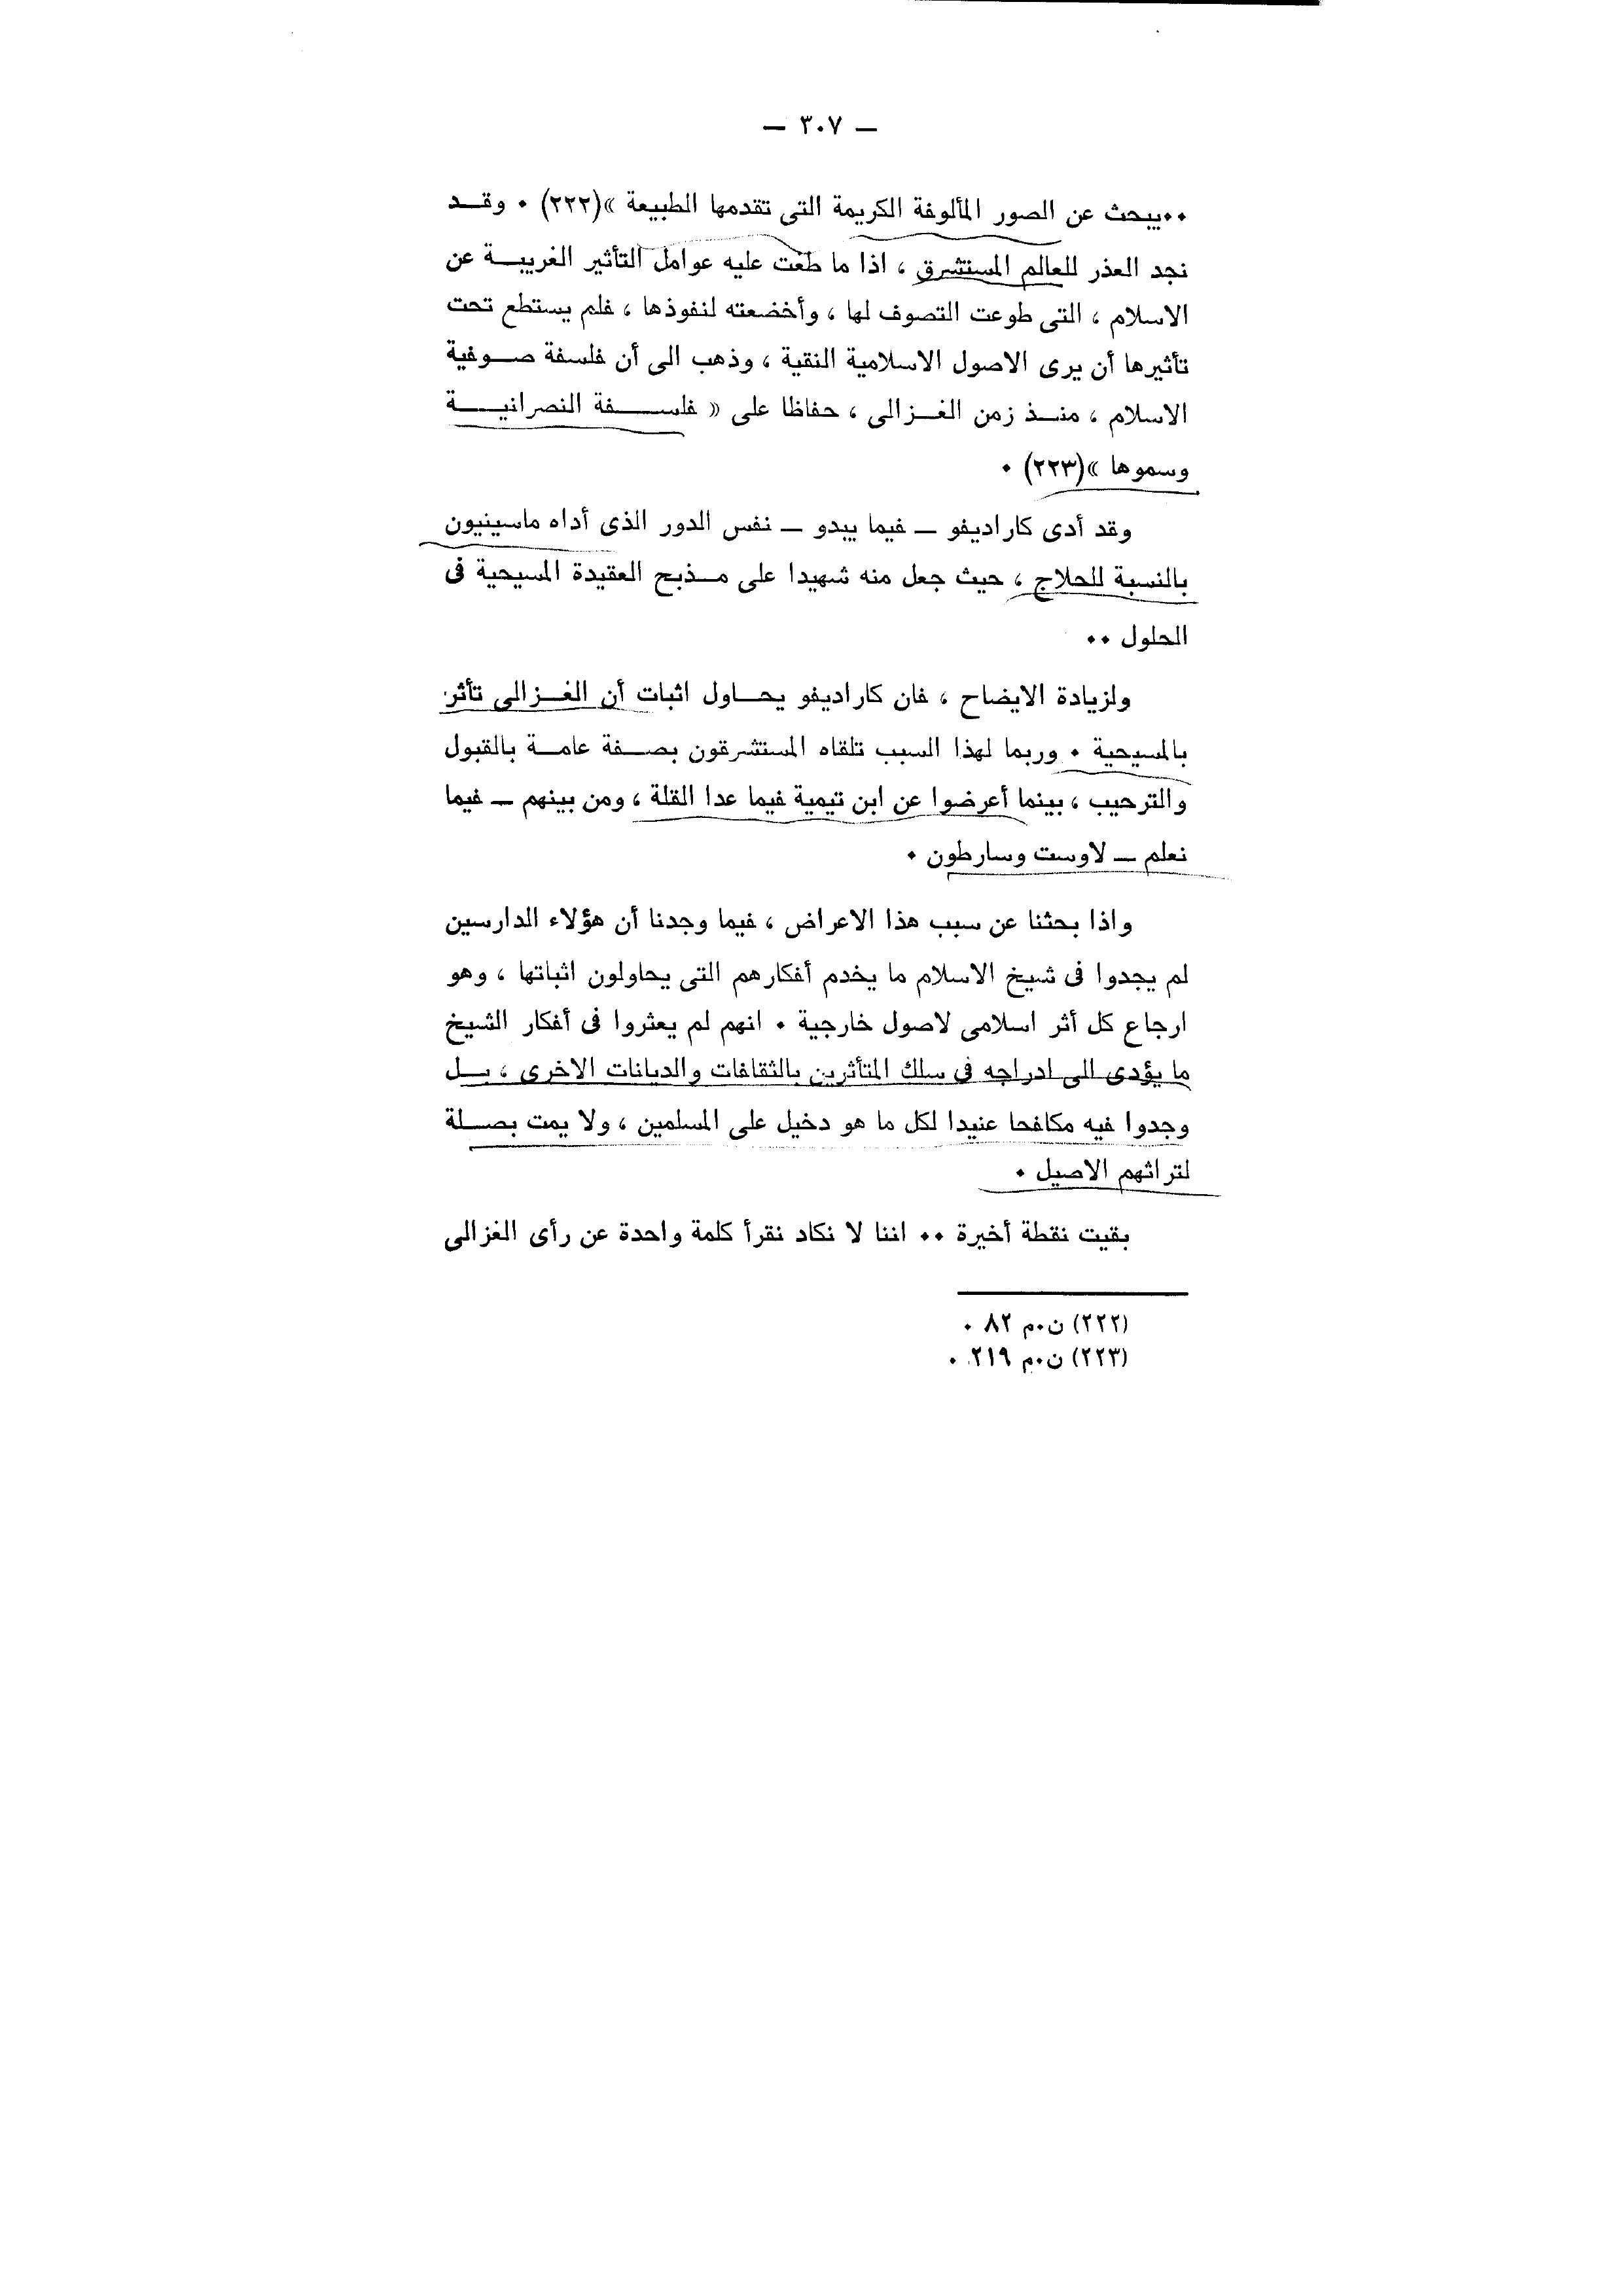 — ٣٠٧ —
٠٠يبحث عن الصور المألوفة الكريمة التى تقدمها الطبيعة »(٢٢٢) ٠ وقـد
نجد العذر للعالم المستشرق ، اذا ما طغت عليه عوامل التأثير الغريبـة عن
الاسلام ، التى طوعت التصوف لها ، وأخضعته لنفوذها ، فلم يستطع تحت
تأثيرها أن يرى الاصول الاسلامية النقية ، وذهب الى أن فلسفة صـوفية
الاسلام ، منـذ زمن الغـزالى ، حفاظا على « فلسـفة النصرانيـة
وسموها »(٢٢٣) ٠
وقد أدى كاراديفو — فيما يبدو — نفس الدور الذى أداه ماسينيون
بالنسبة للحلاج ، حيث جعل منه شهيدا على مـذبح العقيدة المسيحية فى
الحلول ٠٠
ولزيادة الايضاح ، فان كاراديفو يحـاول اثبات أن الغـزالى تأثر
بالمسيحية ٠ وربما لهذا السبب تلقاه المستشرقون بصـفة عامـة بالقبول
والترحيب ، بينما أعرضوا عن ابن تيمية فيما عدا القلة ، ومن بينهم — فيما
نعلم — لاوست وسارطون ٠
واذا بحثنا عن سبب هذا الاعراض ، فيما وجدنا أن هؤلاء الدارسين
لم يجدوا فى شيخ الاسلام ما يخدم أفكارهم التى يحاولون اثباتها ، وهو
ارجاع كل أثر اسلامى لاصول خارجية ٠ انهم لم يعثروا فى أفكار الشيخ
ما يؤدى الى ادراجه فى سلك المتأثرين بالثقافات والديانات الاخرى ، بـل
وجدوا فيه مكافحا عنيدا لكل ما هو دخيل على المسلمين ، ولا يمت بصـلة
لتراثهم الاصيل ٠
بقيت نقطة أخيرة ٠٠ اننا لا نكاد نقرأ كلمة واحدة عن رأى الغزالى
(٢٢٢) ن٠م ٨٢ ٠
(٢٢٣) ن٠م ٢١٩ ٠